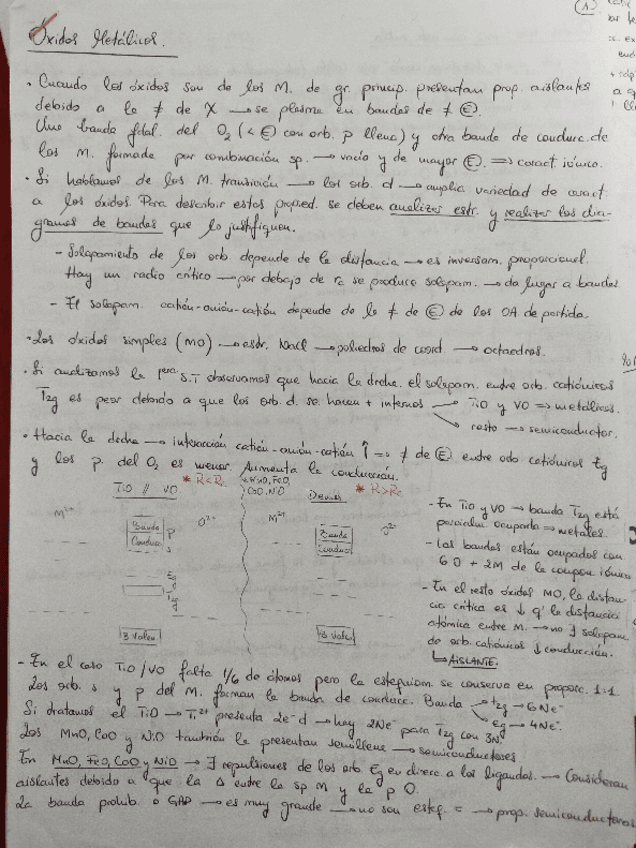 Óxidos Metálicos.
· Cuando los óxidos son de los M. de gr. princip. presentan prop. aislantes
debido a la ≠ de X → se plasma en bandas de ≠ Ⓔ.
Una banda fdal. del O₂ (< Ⓔ con orb. p llena) y otra banda de conducc. de
los M. formada por combinación sp. → vacío y de mayor Ⓔ. ⇒ caract. iónico.
· Si hablamos de los M. transición → los orb. d → amplia variedad de caract.
a los óxidos Para describir estas propied. se deben analizar estr. y realizar los dia-
gramas de bandas que lo justifiquen.
- Solapamiento de los orb depende de la distancia → es inversam. proporcional.
Hay un radio crítico → por debajo de rc se produce solapam. → da lugar a bandas.
- El solapam. catión-anión-catión depende de la ≠ de Ⓔ de los OA de partida.
· Los óxidos simples (MO) → estr. NaCl → poliedros de coord. → octaedros.
· Si analizamos la 1ª s.T observamos que hacia la drcha. el solapam. entre orb. catiónicos
T2g es peor debido a que los orb. d. se hacen + internos → TiO y VO ⇒ metálicos.
→ resto → semiconductor.
· Hacia la dcha → interacción catión-anión-catión ↑ ⇒ ≠ de Ⓔ entre orb catiónicos Eg
y los p. del O₂ es menor. Aumenta la conducción.
TiO // VO * R<Rc
MnO, FeO, CoO, NiO * R>Rc
M²⁺ Banda Conducc. p s O²⁻
M²⁺ Banda Conducc. O²⁻
Eg
T2g
B Valen
B Valen
- En TiO y VO → banda T2g está
parcialm. ocupada ⇒ metales.
- Las bandas están ocupadas con
6 O + 2M de la compon iónica
- En el resto óxidos MO, la distan-
cia crítica es ↓ q' la distancia
atómica entre M. → no ∃ solapam.
de orb. catiónicos ↓ conducción.
↳ AISLANTE.
- En el caso TiO/VO falta 1/6 de átomos pero la estequiom. se conserva en proporc. 1:1.
Los orb. s y p del M. forman la banda de conducc. Banda → t2g → 6Ne⁻
→ eg → 4Ne⁻.
Si tratamos el TiO → Ti²⁺ presenta 2e⁻ d → hay 2Ne⁻ para T2g con 3N
Los MnO, CoO y NiO también la presentan semillena → semiconductores
En MnO, FeO, CoO y NiO → ∃ repulsiones de los orb. Eg en direcc. a los ligandos. → Consideran
aislantes debido a que la Δ entre la sp M y la p O.
La banda prohib. o GAP → es muy grande → no son esteq. = → prop. semiconductoras